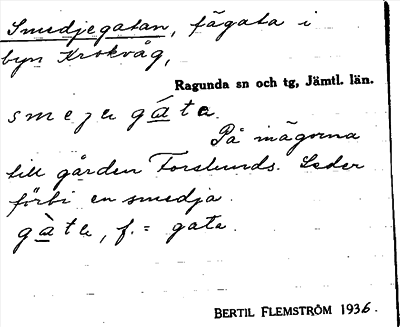 Smedjegatan, fägata i
byn Krokvåg,
Ragunda sn och tg, Jämtl. län.
smejegáta.
På inägorna
till gården Forslunds. Leder
förbi en smedja.
gàta, f. = gata.
BERTIL FLEMSTRÖM 1936.